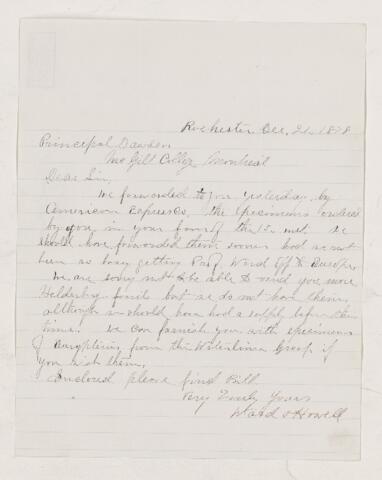 Rochester Dec. 21 1878
Principal Dawson
McGill College Montreal
Dear Sir,
We forwarded to you yesterday by
American Express, the specimens ordered
by you in your favor of the inst. We
should have forwarded them sooner had we not
been so busy getting Prof Ward off to Europe.
We are sorry not to be able to send you more
Helderberg fossils but we do not have them,
although we should have had a supply before this
time. We can furnish you with specimens
of Eurypterus, from the Waterlime Group if
you wish them.
Enclosed please find Bill
Very Truly Yours
Ward & Howell